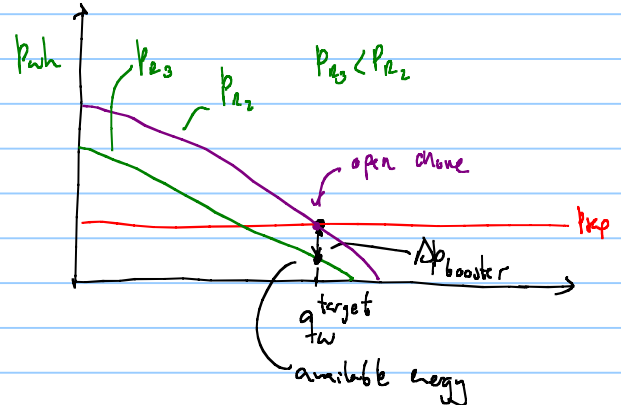 p_wh
p_R3
p_R2
p_R3 < p_R2
open choke
p_sep
Δp_booster
q_w^target
available energy